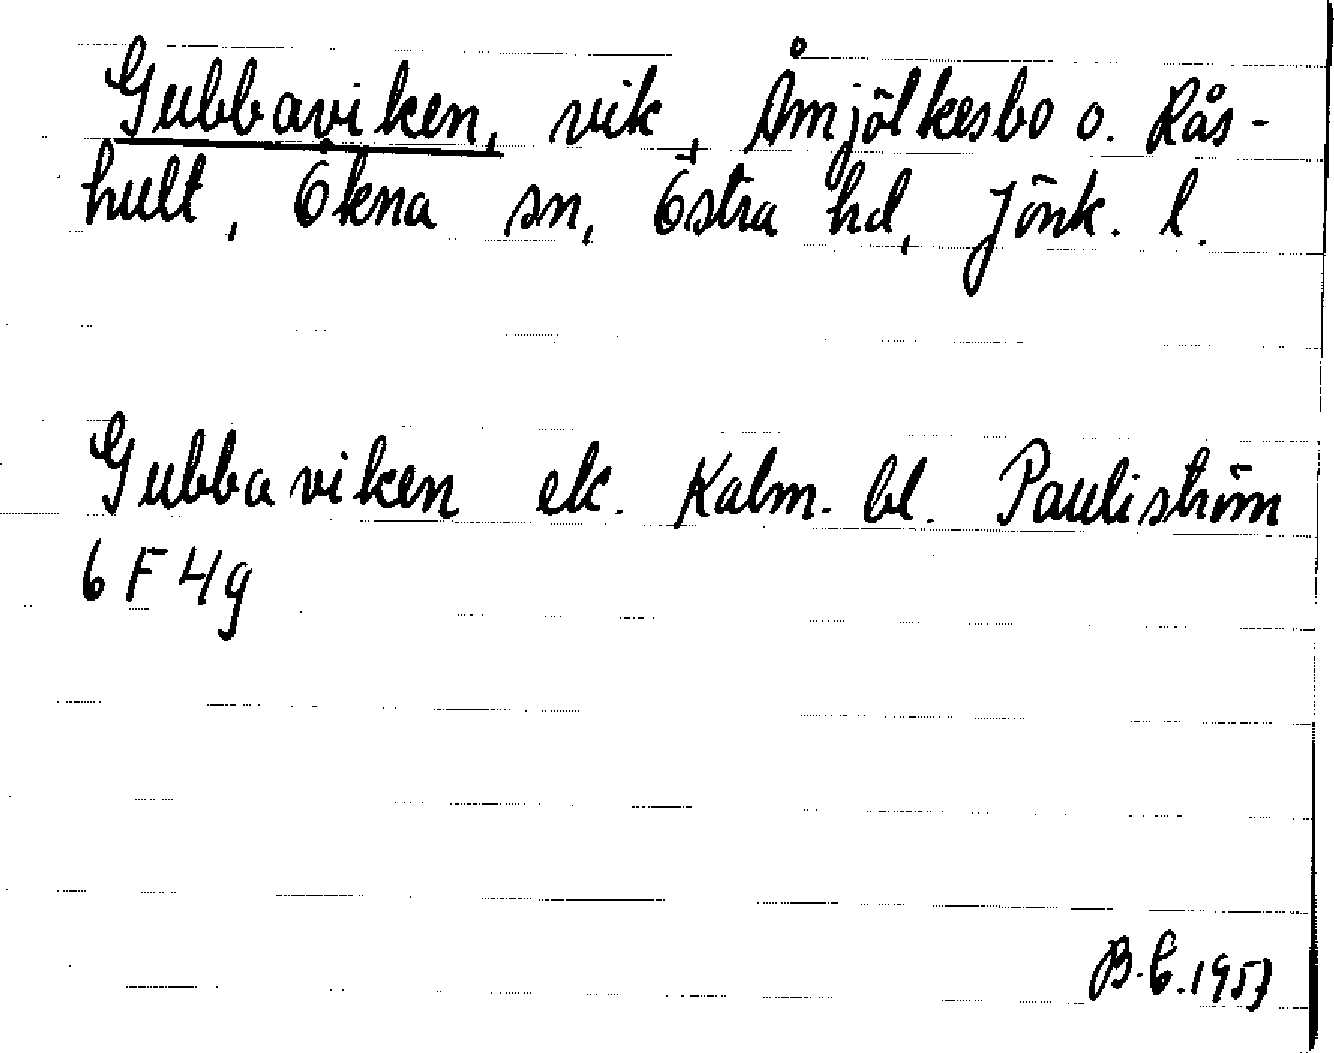 Gubbaviken, vik, Åmjölkesbo o. Rås-
hult, Ökna sn, Östra hd, Jönk. l.
Gubbaviken ek. Kalm. bl. Pauliström
6 F 4g
B.C. 1957